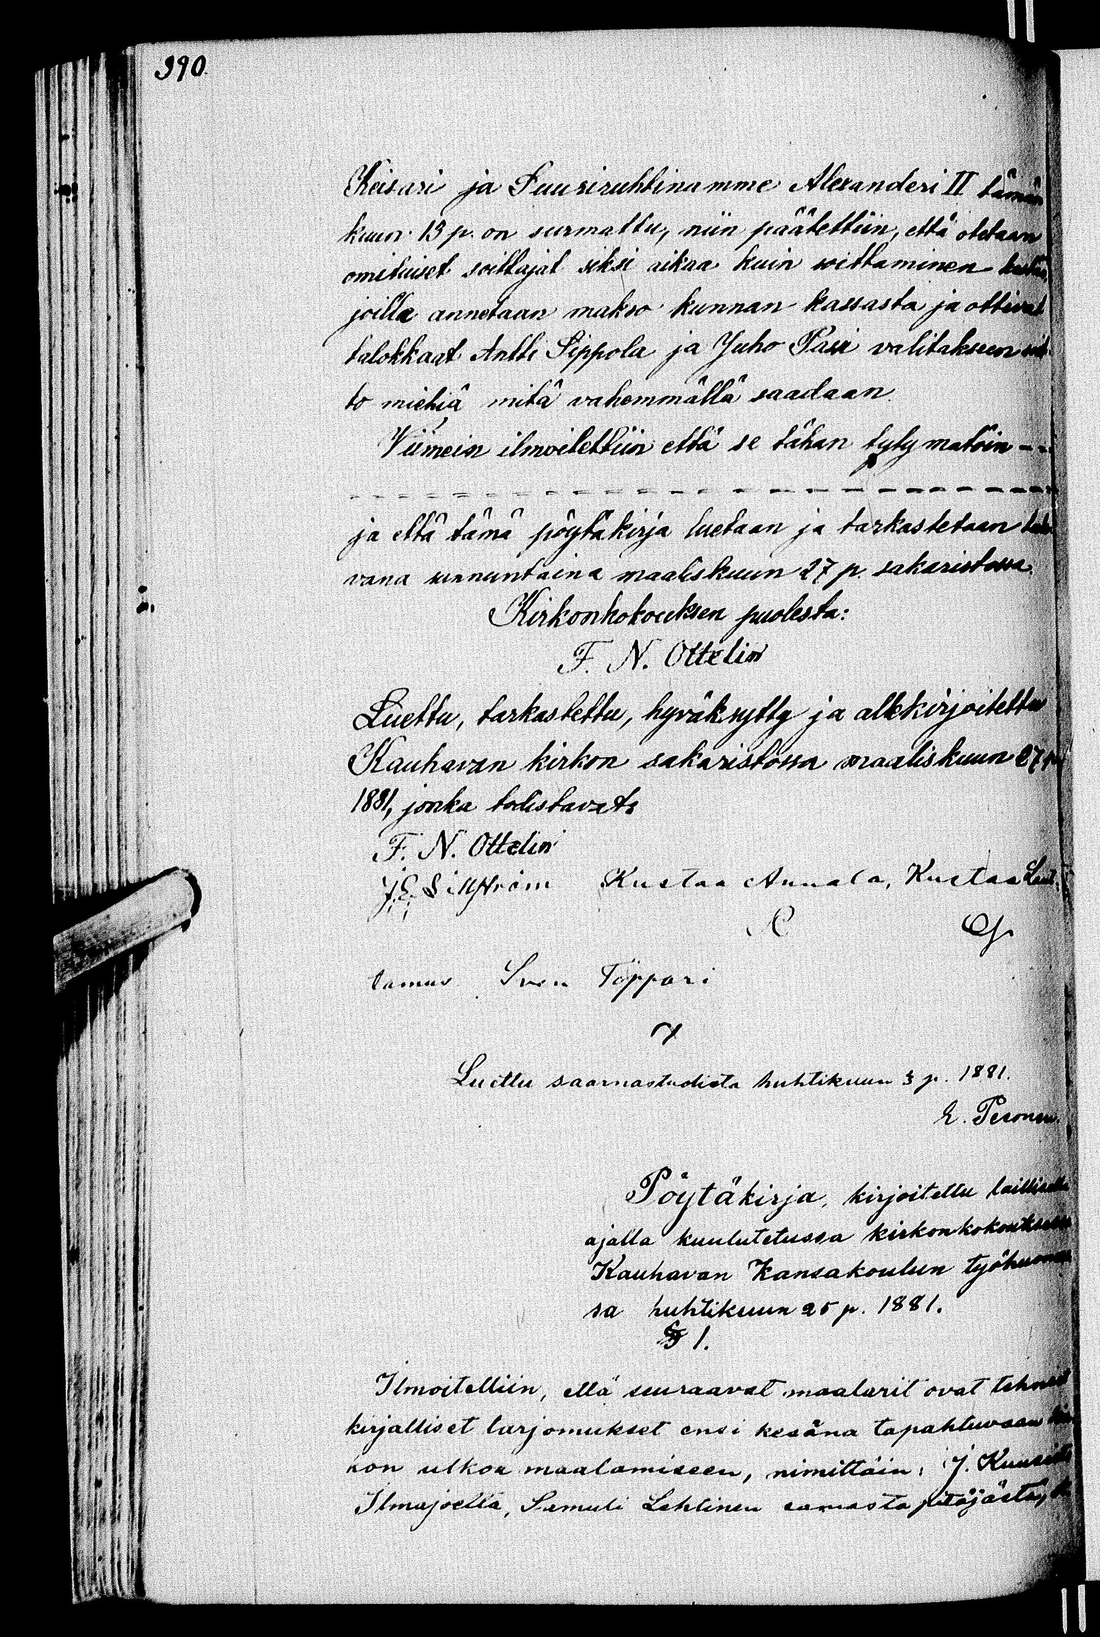 390.
Keisari ja Suuriruhtinamme Alexanderi II tämän
kuun 13 p. on surmattu, niin päätettiin, että otetaan
omituiset soittajat siksi aikaa kuin soittaminen kestää,
joille annetaan makso kunnan kassasta ja ottivat
talokkaat Antti Sippola ja Juho Pasi valitakseen
to miehiä mitä vahemmällä saadaan.
Viimein ilmoitettiin että se tähan tytymatöin - -
- - - - - - - - - - - - - - - - - - - - - -
ja että tämä pöytäkirja luetaan ja tarkastetaan
vana sunnuntaina maaliskuun 27 p. sakaristossa.
Kirkonkokouksen puolesta:
F. N. Ottelin
Luettu, tarkastettu, hyväksytty ja allekirjoitettu
Kauhavan kirkon sakaristossa maaliskuun 27 p.
1881, jonka todistavat:
F. N. Ottelin
J. E. Sillström Kustaa Annala, Kustaa Lat-
tamus Sven Töppari
Luettu saarnastuolista huhtikuun 3 p. 1881.
E. Pesonen.
Pöytäkirja, kirjoitettu laillisella
ajalla kuulutetussa kirkonkokouksessa
Kauhavan Kansakoulun työhuonees
sa huhtikuun 25 p. 1881.
§ 1.
Ilmoitettiin, että seuraavat maalarit ovat tehneet
kirjalliset tarjomukset ensi kesäna tapahtuvaan kir
kon ulkoa maalamiseen, nimittäin: J. Kuusisto
Ilmajoelta, Samuli Lehtinen samasta pitäjästä,